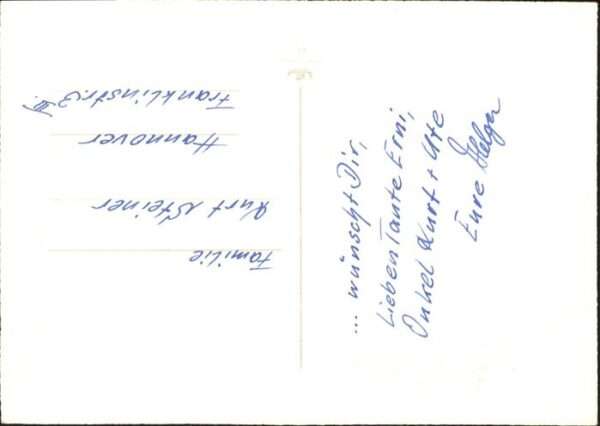 ... wünscht Dir,
Lieben Tante Erni,
Onkel Kurt + Ute
Eure Helga
Familie
Kurt Steiner
Hannover
Franklinstr. 3
III